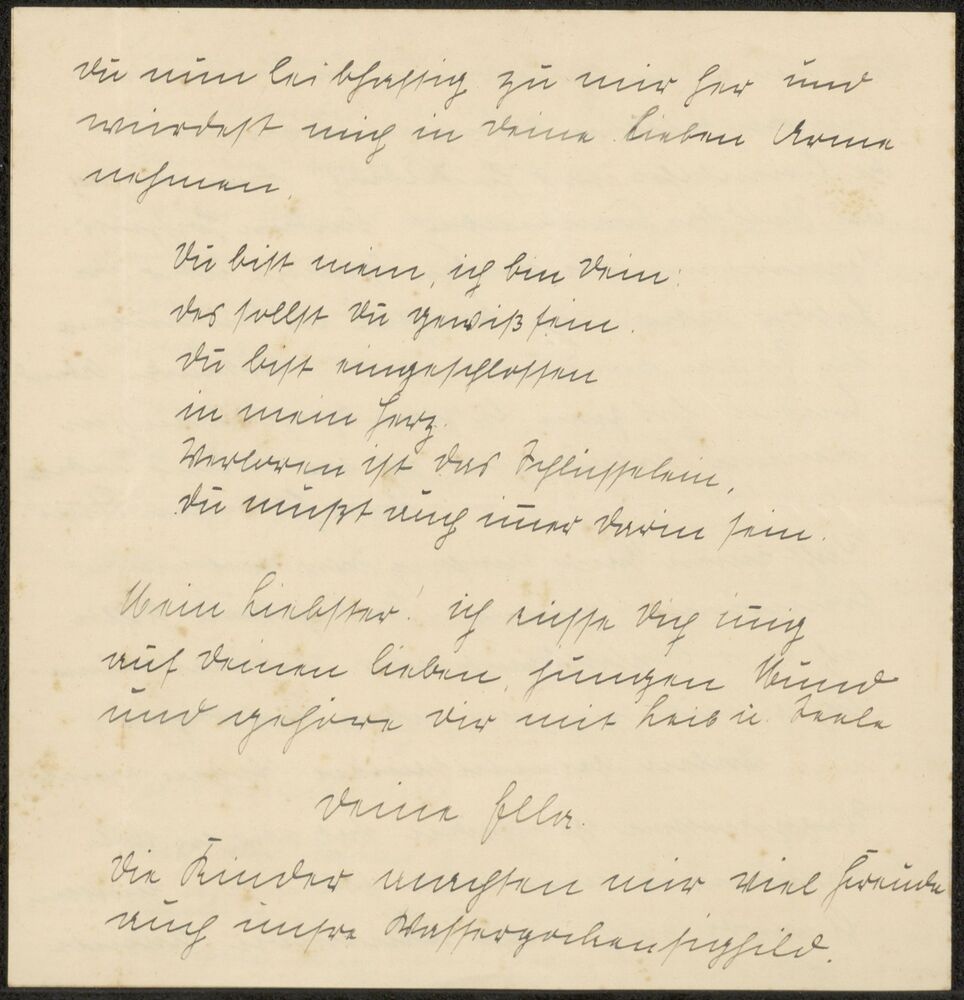 du nun leibhaftig zu mir her und
würdest mich in deine lieben Arme
nehmen.
Du bist mein, ich bin dein:
des sollst du gewiß sein.
du bist eingeschlossen
in mein Herz.
Verloren ist das Schlüsselein,
du mußt auch im̅er darin sein.
Mein Liebster! ich küsse dich in̅ig
auf deinen lieben, jungen Mund
und gehöre dir mit Leib u. Seele
deine Ella.
die Kinder machten mir viel Freude
auch unsre